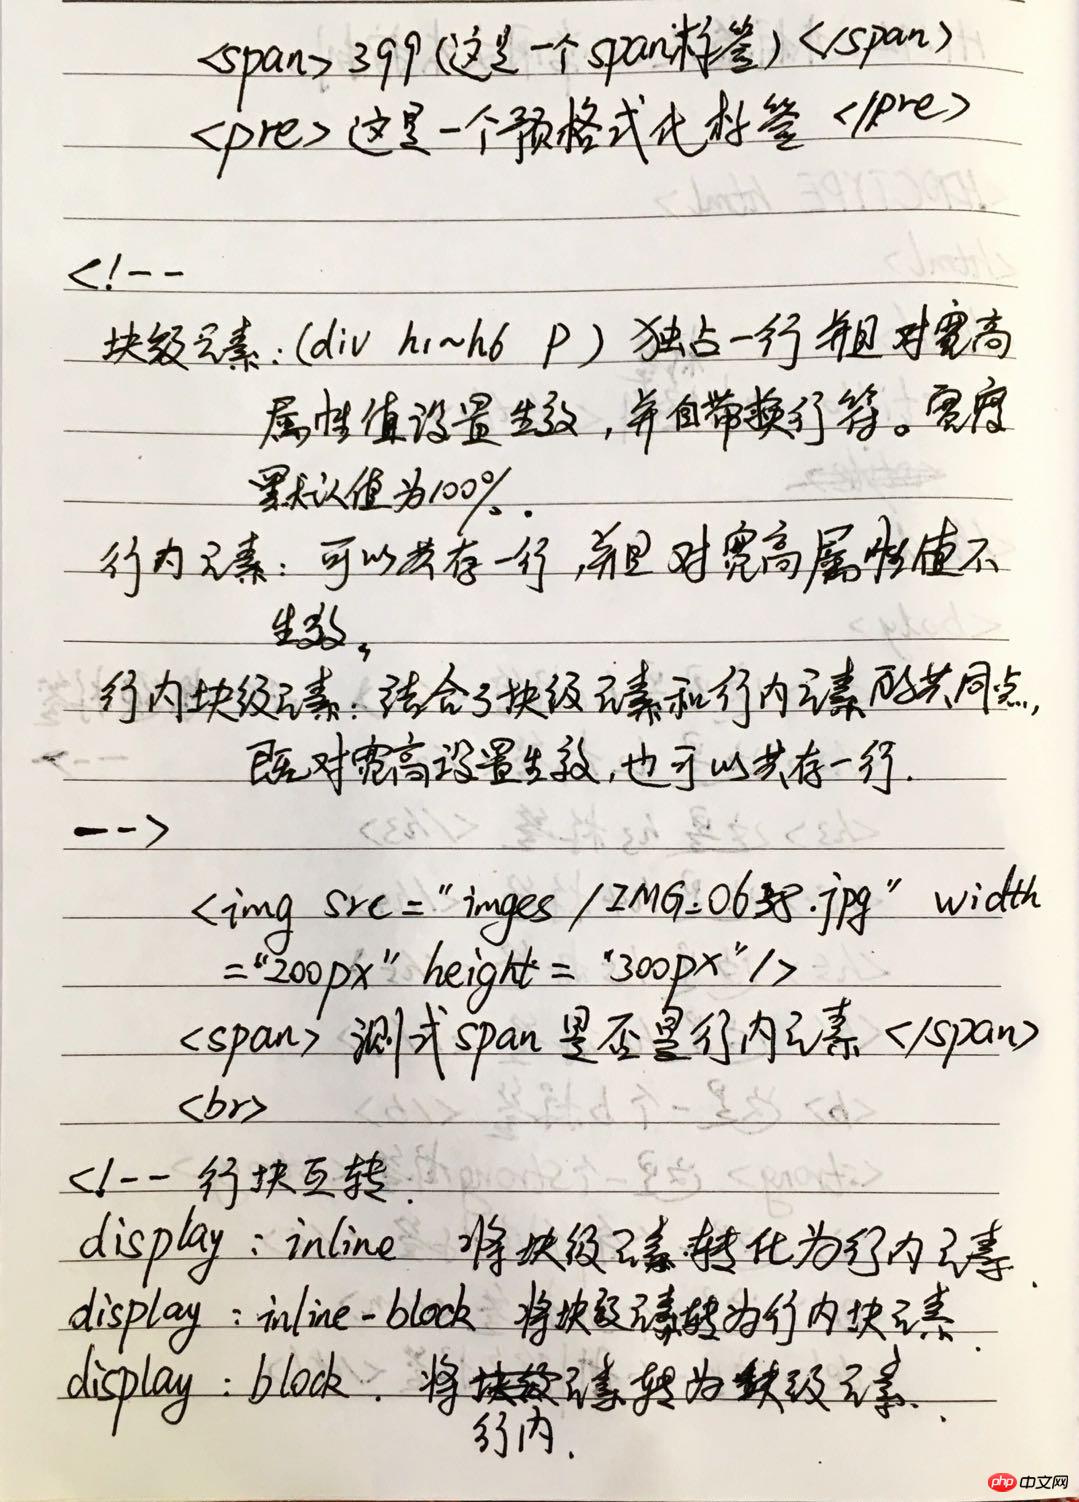 <span> 399(这是一个span标签) </span>
<pre> 这是一个预格式化标签 </pre>
<!--
块级元素:(div h1~h6 p) 独占一行 并且 对宽高
属性值设置生效,并自带换行符。宽度
默认值为100%.
行内元素: 可以共存一行,并且 对宽高属性值不
生效,
行内块级元素:结合了块级元素和行内元素的共同点,
既对宽高设置生效,也可以共存一行.
-->
<img src="imges /IMG_06.jpg" width
="200px" height = "300px"/>
<span> 测式span是否是行内元素 </span>
<br>
<!-- 行块互转.
display : inline 将块级元素转化为行内元素.
display : inline-block 将块级元素转为行内块元素.
display : block . 将元素转为块级元素.
行内.
php 中文网